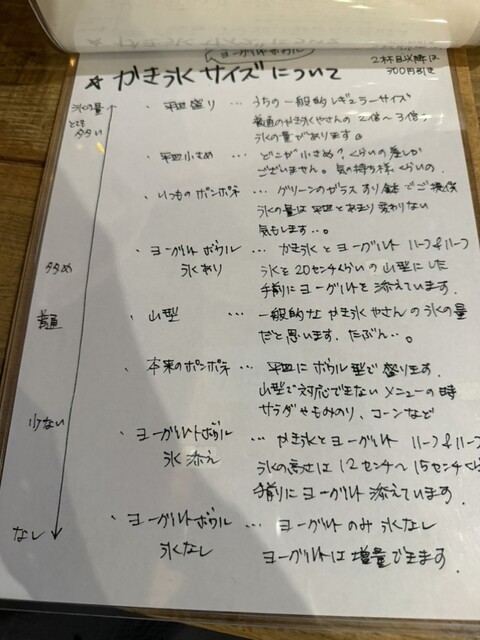 ヨーグルトボウル
2杯目以降は
300円引き
☆ かき氷サイズについて
氷の量
とても
多い
・平皿盛り … うちの一般的レギュラーサイズ
普通のかき氷やさんの2倍〜3倍
氷の量があります。
・平皿小さめ … どこが小さめ?くらいの差しか
ございません。気の持ち様くらいの。
・いつものポンポネ … グリーンのガラスすり鉢でご提供
氷の量は平皿とあまり変わりない
気もします・・。
多め
・ヨーグルトボウル … かき氷とヨーグルト ハーフ&ハーフ
氷あり 氷を20センチくらいの山型にした
手前にヨーグルトを添えています。
普通
・山型 … 一般的なかき氷やさんの氷の量
だと思います。たぶん・・。
・本来のポンポネ … 平皿にボウル型で盛ります。
山型で対応できないメニューの時
サラダやもみのり、コーンなど
少ない
・ヨーグルトボウル … かき氷とヨーグルト ハーフ&ハーフ
氷添え 氷の高さは12センチ〜15センチくら
手前にヨーグルト添えています。
なし
・ヨーグルトボウル … ヨーグルトのみ 氷なし
氷なし ヨーグルトは増量できます。